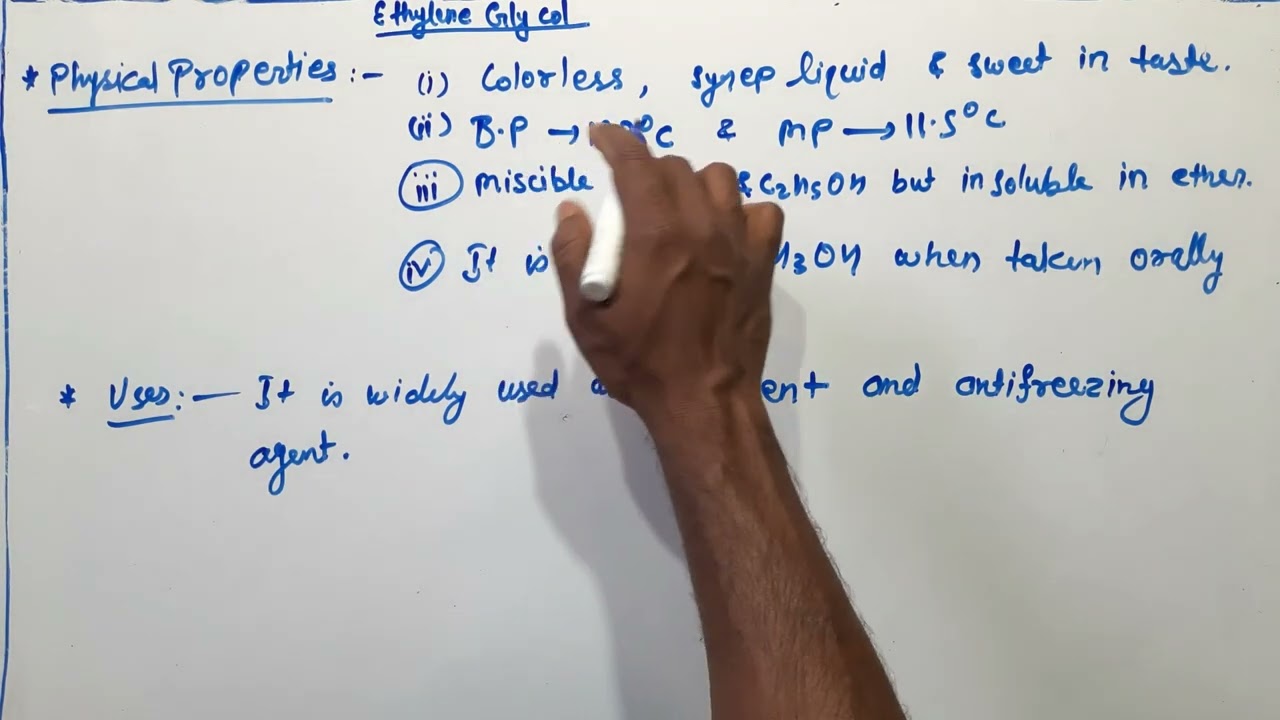 Ethylene Glycol
* Physical Properties :- (i) Colorless, syrep liquid & sweet in taste.
(ii) B.P → °C & MP → 11.5°C
(iii) miscible & C2H5OH but insoluble in ether.
(iv) It is H3OH when taken orally
* Uses :- It is widely used and antifreezing
agent.